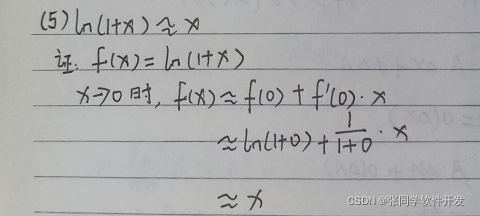 (5) ln(1+x) ≈ x
证: f(x) = ln(1+x)
x→0时, f(x) ≈ f(0) + f'(0)·x
≈ ln(1+0) + 1/(1+0) · x
≈ x
CSDN @张同学软件开发